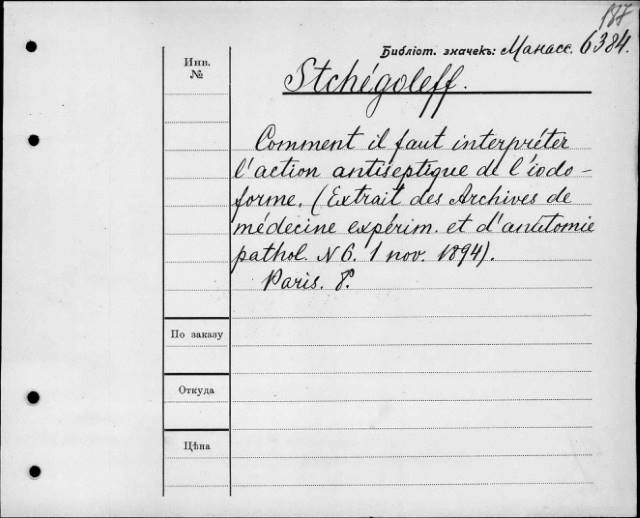 Библіот. значекъ: Манасс. 6384.
Инв.
№
Stchégoleff.
Comment il faut interpréter
l'action antiseptique de l'iodo-
forme. (Extrait des Archives de
médecine expérim. et d'anatomie
pathol. N 6. 1 nov. 1894).
Paris. 8°.
По заказу
Откуда
Цѣна